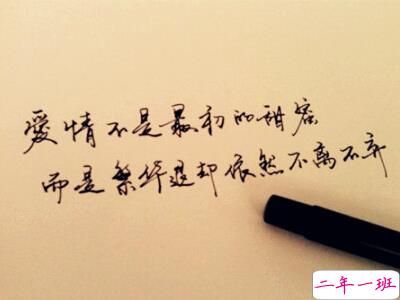 愛情不是最初的甜蜜
而是繁华退却依然不离不弃
二年一班